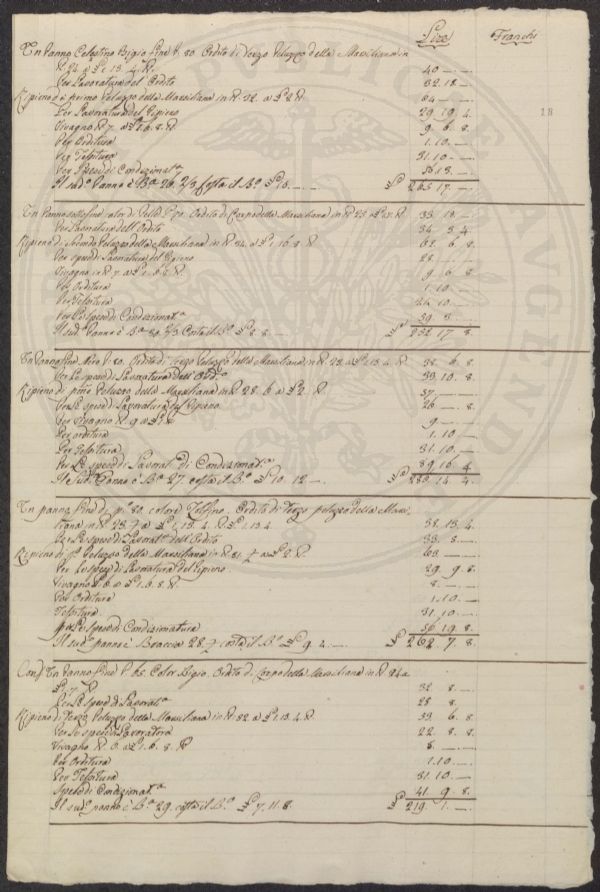 Lire Franchi
Un Panno Celestino Bigio fine P. 80 Ordito di Terzo Peluzzo della Marsiliana in
R. 24 a £ 1. 13. 4. R. 40 — —
Per Lavoratura del Ordito 32. 18 —
Ripieno di primo Peluzzo della Marsiliana in R. 32. a £ 2 R. 64 — —
Per Lavoratura del Ripieno 29. 19. 4.
Vivagno R. 7. a £ 1. 6. 8. R. 9. 6. 8.
Per Orditura 1. 10. —
Per Tesitura 31. 10 —
Per Spese di Condizionat.a 56 13. —
Il sud.o Panno è B.a 26. 2/3 costa il B.o £ 10. — — £ 265 17. —
18
Un Panno sottofine color di P. 70. Ordito di Corpo della Marsiliana in R. 25 a R. 33. 13. —
Per Lavoratura dell'Ordito 34 3 4.
Ripieno di secondo Peluzzo della Marsiliana in R. 34. a £ 1. 16. 8. R. 62. 6. 8.
Per spese di Lavoratura del Ripieno 28
Vivagno in R. 7. a £ 1. 6. 8. R. 9 6 8
Per Orditura 1. 10 —
Per Tesitura 24 10 —
Per Le Spese di Condizionat.a 39 8 —
Il sud.o Panno è B.a 30. 2/3 Costa il B.o £ 8. 8. — £ 232 17 8
Un Panno fine Nero P. 80. Ordito di Terzo Peluzzo della Marsiliana, in R. 23. a £ 1. 13. 4. R. 38. 6. 8.
Per Le spese di Lavoratura dell'Ord.o 33. 10. 8.
Ripieno di primo Peluzzo della Marsiliana in R. 28. 6 a £ 2. R. 57 — —
Per Le spese di Lavoratura del Ripieno 26 — 8.
Per Vivagno R. 9 a £ 1. R. 9 — —
Per orditura 1. 10. —
Per Tesitura 31. 10 —
Per Le spese di Lavorat.a di Condizionat.a 89 16 4
Il Sud.o Panno è B.a 27. costa il B.o £ 10. 12 — £ 286. 14 4
Un panno fine di P. 80. colore Delfino. Ordito di Terzo peluzzo della Marsi=
liana in R. 23. a £ 1. 13. 4. R. 38. 13. 4.
Per Le spese di Lavorat.a dell'Ordito 33. 8. —
Ripieno di P.o Peluzzo della Marsiliana in R. 31. a £ 2. R. 63 — —
Per Le spese di Lavoratura del Ripieno 29. 9. 8.
Vivagno R. 6. a £ 1. 6. 8. R. 8 — —
Per Orditura 1. 10. —
Tesitura 31. 10 —
per Le spese di Condizionatura 56 19. 8
Il sud.o panno è Braccia 28. costa il B.o £ 9. 4. — £ 262. 7. 8.
Un Panno fine P. 65. Color Bigio. Ordito di Corpo della Marsiliana in R. 24 a
£ 1. 7. R. 32. 8. —
Per Le spese di Lavorat.a 28 8. —
Ripieno di Terzo Peluzzo della Marsiliana in R. 32 a £ 1. 13. 4. R. 53. 6. 8.
Per Le spese di Lavoratura 22. 8. 8.
Vivagno R. 6. a £ 1. 6. 8. R. 8. — —
Per Orditura 1. 10. —
Per Tesitura 31. 10 —
Spese di Condizionat.a 41. 9 8.
Il sud.o panno è B.a 29. costa il B.o £ 7. 11. 8. £ 219. 1. —